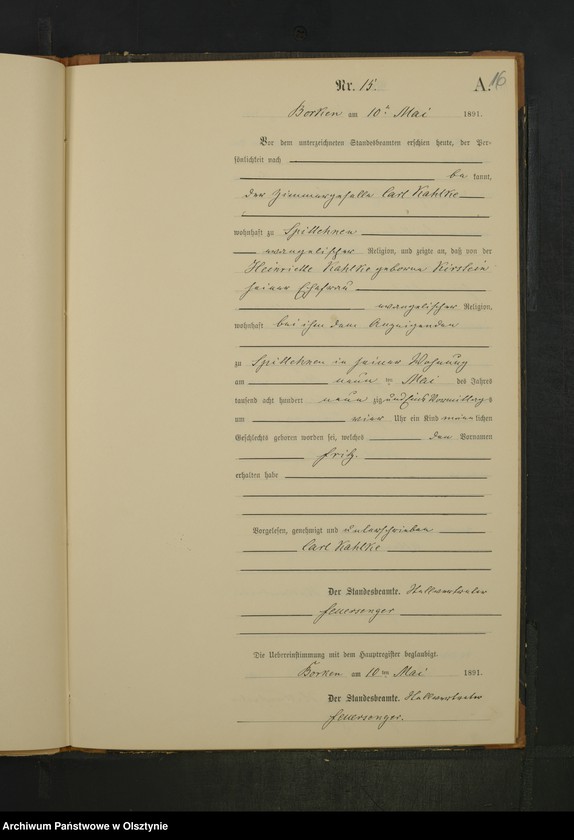 Nr. 15.
A. 16
Borken am 10n Mai 1891.
Vor dem unterzeichneten Standesbeamten erschien heute, der Per-
sönlichkeit nach
be kannt,
der Zimmergeselle Carl Kahlke
wohnhaft zu Spittehnen
evangelischer Religion, und zeigte an, daß von der
Heinriette Kahlke geborne Kirstein
seiner Ehefrau
evangelischer Religion,
wohnhaft bei ihm dem Anzeigenden
zu Spittehnen in seiner Wohnung
am neun ten Mai des Jahres
tausend acht hundert neun zig und Eins Vormittags
um vier Uhr ein Kind männlichen
Geschlechts geboren worden sei, welches den Vornamen
Fritz.
erhalten habe
Vorgelesen, genehmigt und unterschrieben
Carl Kahlke
Der Standesbeamte. Stellvertreter
Feuersenger
Die Uebereinstimmung mit dem Hauptregister beglaubigt.
Borken am 10ten Mai 1891.
Der Standesbeamte. Stellvertreter
Feuersenger.
Archiwum Państwowe w Olsztynie